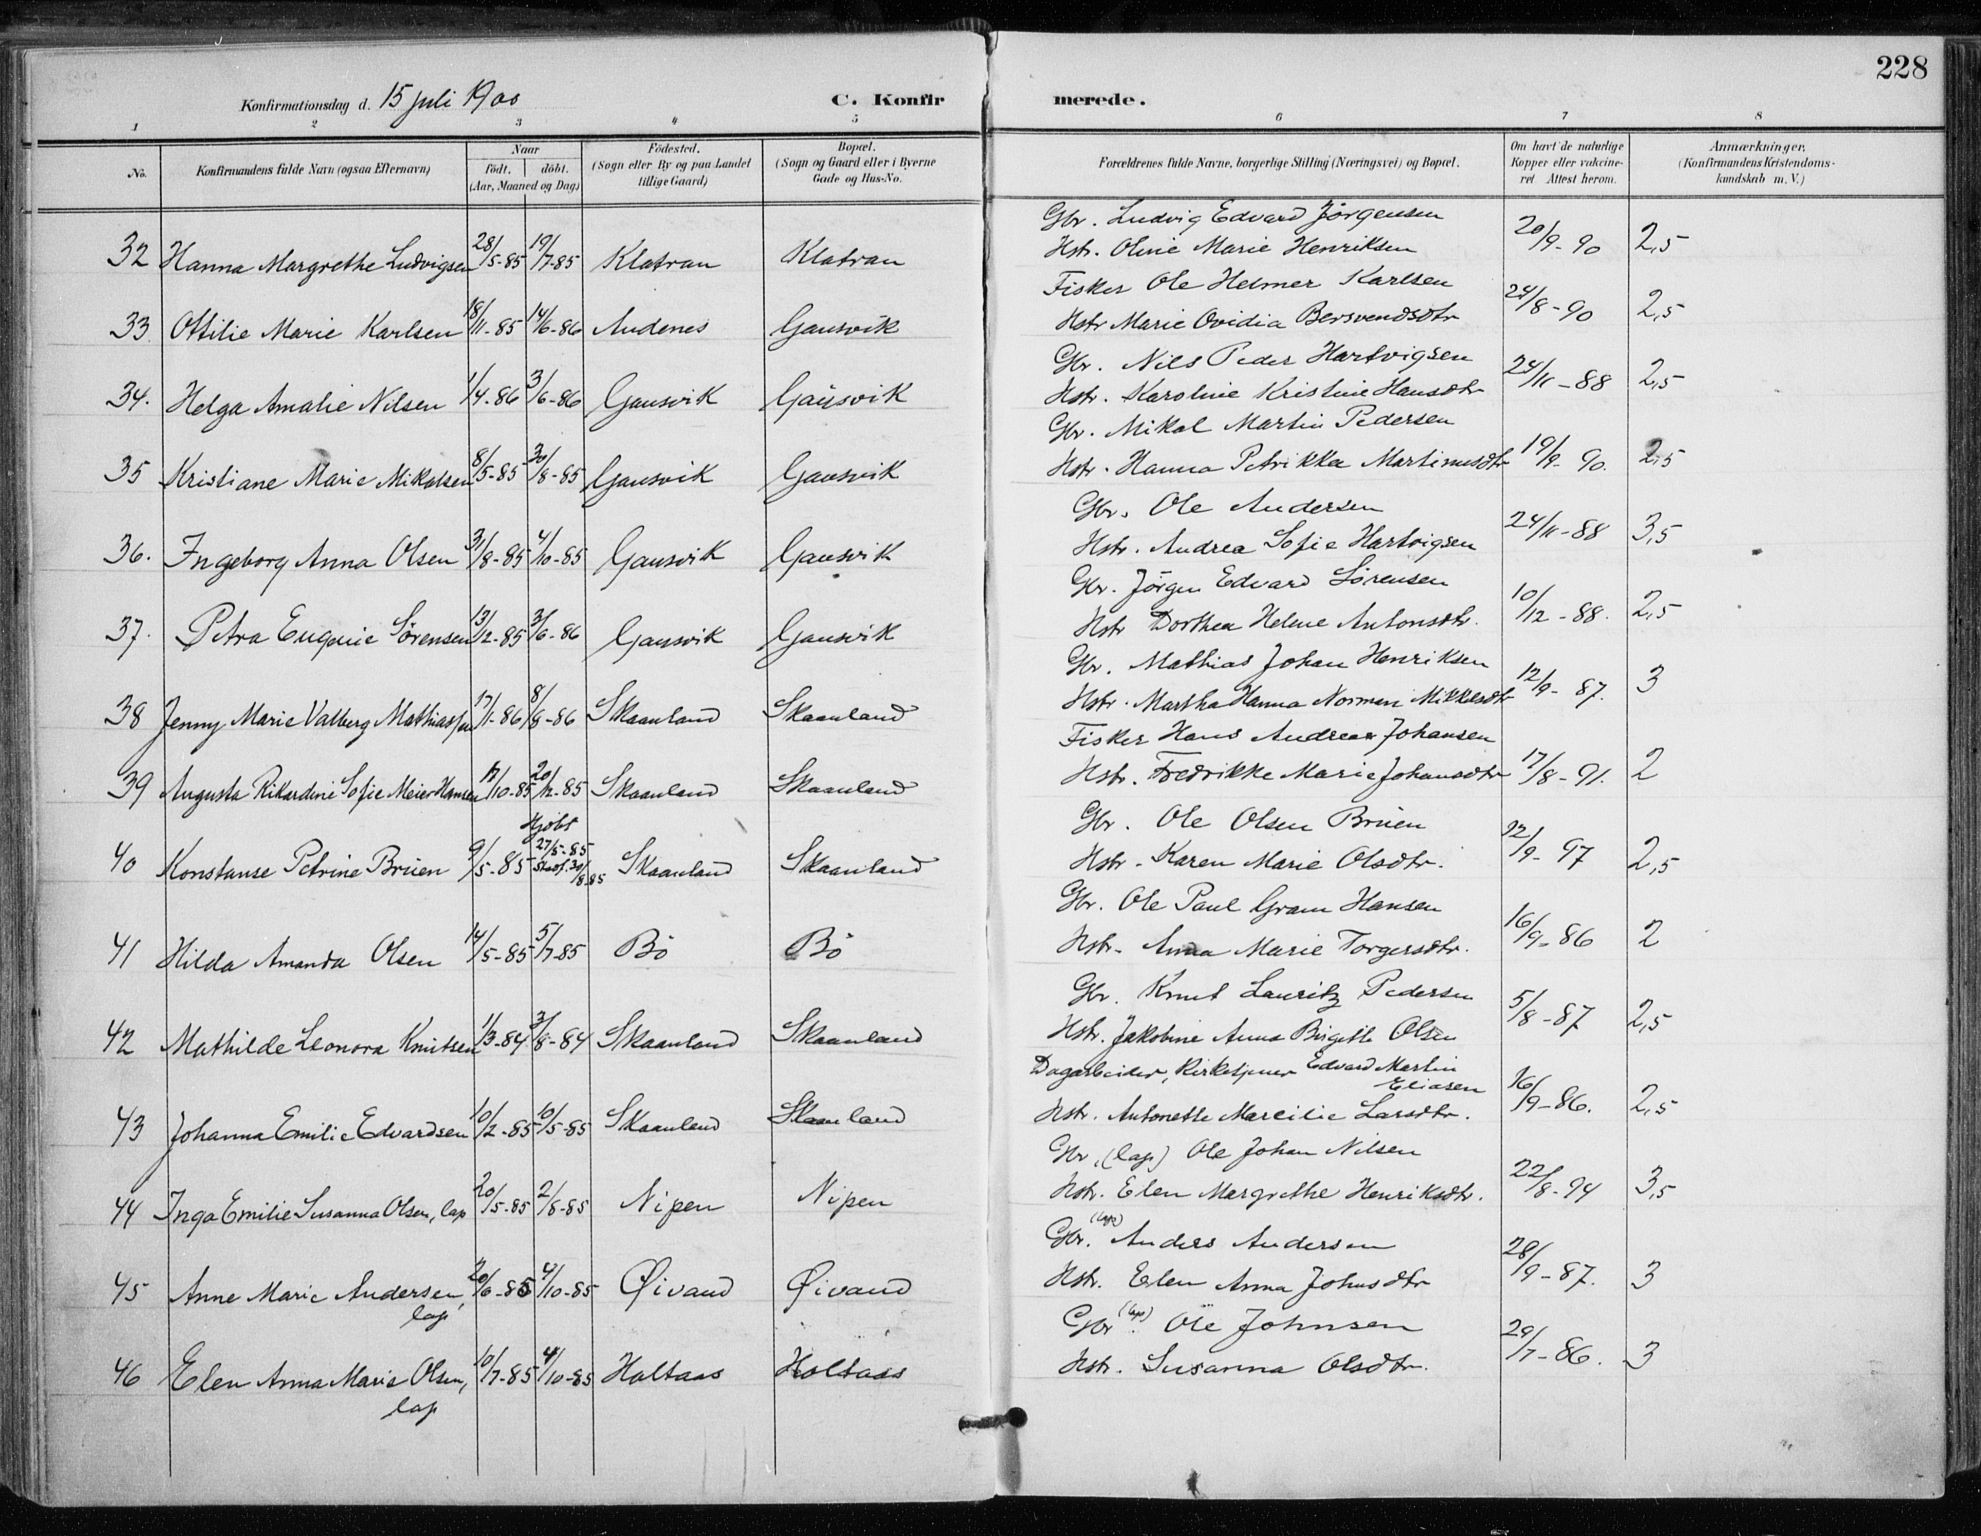 228
Konfirmationsdag d. 15 juli 1900 C. Konfirmerede.
1 2 3 4 5 6 7 8
No. Konfirmandens fulde Navn (ogsaa Efternavn) Naar født. døbt. (Aar, Maaned og Dag) Fødested. (Sogn eller By og paa Landet tillige Gaard) Bopæl. (Sogn og Gaard eller i Byerne Gade og Hus-No. Forældrenes fulde Navne, borgerlige Stilling (Næringsvei) og Bopæl. Om havt de naturlige Kopper eller vakcineret. Attest herom. Anmærkninger. (Konfirmandens Kristendomskundskab m. V.)
Gbr. Ludvig Edvard Jörgensen
32 Hanna Margrethe Ludvigsen 28/5-85 19/7-85 Klatran Klatran Hstr. Oline Marie Henriksen 20/9-90 2,5
Fisker Ole Helmer Karlsen
33 Ottilie Marie Karlsen 18/11-85 14/6-86 Andenes Gausvik Hstr Marie Ovidia Bersvendsdtr 24/8-90 2,5
Gbr. Nils Peder Hartvigsen
34. Helga Amalie Nilsen 1/4-86 3/6-86 Gausvik Gausvik Hstr. Karoline Kristine Hansdtr 24/11-88 2,5
Gbr. Mikal Martin Pedersen
35 Kristiane Marie Mikalsen 8/5-85 30/8-85 Gausvik Gausvik Hstr. Hanna Petrikka Martinusdtr 19/9-90. 2,5
Gbr. Ole Andersen
36. Ingeborg Anna Olsen 31/8-85 4/10-85 Gausvik Gausvik Hstr. Andrea Sofie Hartvigsen 24/11-88 3,5
Gbr. Jörgen Edvard Sörensen
37. Petra Eugenie Sörensen 13/12-85 3/6-86 Gausvik Gausvik Hstr Dorthea Helene Antonsdtr. 10/12-88. 2,5
Gbr. Mathias Johan Henriksen
38 Jenny Marie Valberg Mathiassen 17/1-86 8/8-86 Skaanland Skaanland Hstr. Martha Hanna Norman Mikkelsdtr 12/9-87. 3
Fisker Hans Andreas Johansen
39 Augusta Rikardine Sofie Meier Hansen 17/10-85 20/12-85 Skaanland Skaanland Hstr. Fredrikke Marie Johansdtr 17/8-91. 2
Gbr. Ole Olsen Brüen
40 Konstanse Petrine Brüen 9/5-85 Hjöbt 27/5-85 Stadf. 30/8-85 Skaanland Skaanland Hstr. Karen Marie Olsdtr. 22/9-97 2,5
Gbr. Ole Paul Gram Hansen
41 Hilda Amanda Olsen 14/5-85 5/7-85 Bö Bö Hstr. Anna Marie Torgersdtr. 16/9-86 2
Gbr. Knut Lauritz Pedersen
42 Mathilde Leonora Knutsen 1/3-84 3/8-84 Skaanland Skaanland Hstr. Jakobine Anna Birgitte Olsen 5/8-87 2,5
Dagarbeider, Kirketjener Edvard Martin Eliasen
43 Johanna Emilie Edvardsen 10/2-85 10/5-85 Skaanland Skaanland Hstr. Antonette Marcilie Larsdtr. 16/9-86. 2,5
Gbr. (lap) Ole Johan Nilsen
44 Inga Emilie Susanna Olsen, lap 20/5-85 2/8-85 Nipen Nipen Hstr. Elen Margrethe Henriksdtr. 22/8-94 3,5
Gbr. (lap) Anders Andersen
45 Anne Marie Andersen, lap 20/6-85 4/10-85 Øivand Øivand Hstr. Elen Anna Johnsdtr 28/9-87. 3
Gbr (lap). Ole Johnsen
46 Elen Anna Marie Olsen, lap 10/7-85 4/10-85 Holtaas Holtaas Hstr. Susanna Olsdtr. 29/7-86. 3